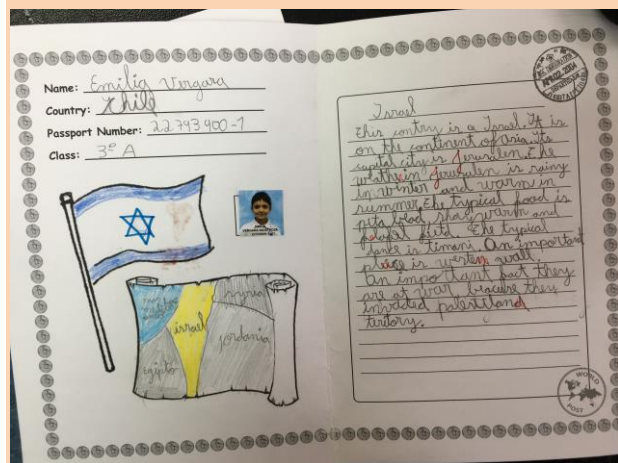 Name: Emilia Vergara
Country: Chile
Passport Number: 22793400-7
Class: 3º A
israel
Egipto
jordania
Israel
this contry is a Israel. It is
on the continent of asia. Its
capital city is Jerusalen. The
in Jerusalen is rainy
in winter and warm in
summer. The typical food is
pita and
The typical
dance is Timani. An important
place is western wall.
An important fact they
are at war because they
invaded
teritory.
WORLD
POST